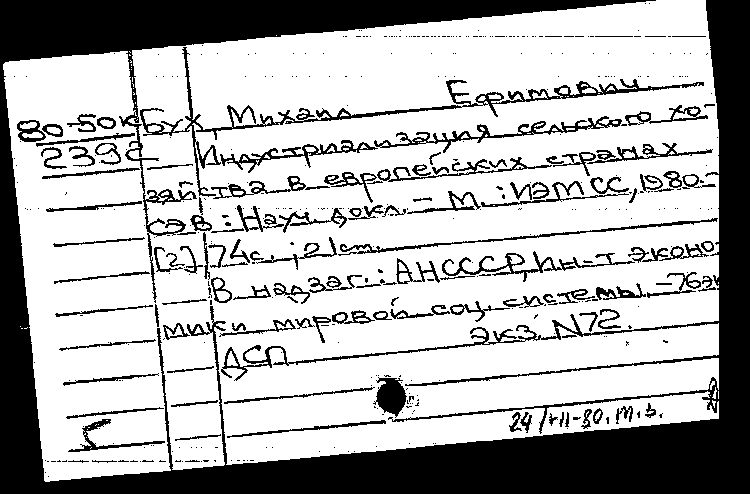 80-50к Бух, Михаил Ефимович.
2392 Индустриализация сельского хо-
зяйства в европейских странах
СЭВ : Науч. докл. - М. : ИЭМСС, 1980.-
[2], 74с. ; 21см.
В надзаг.: АН СССР, Ин-т эконо-
мики мировой соц. системы. -76эк
экз. N72.
ДСП
24/VII-80. М.Б.